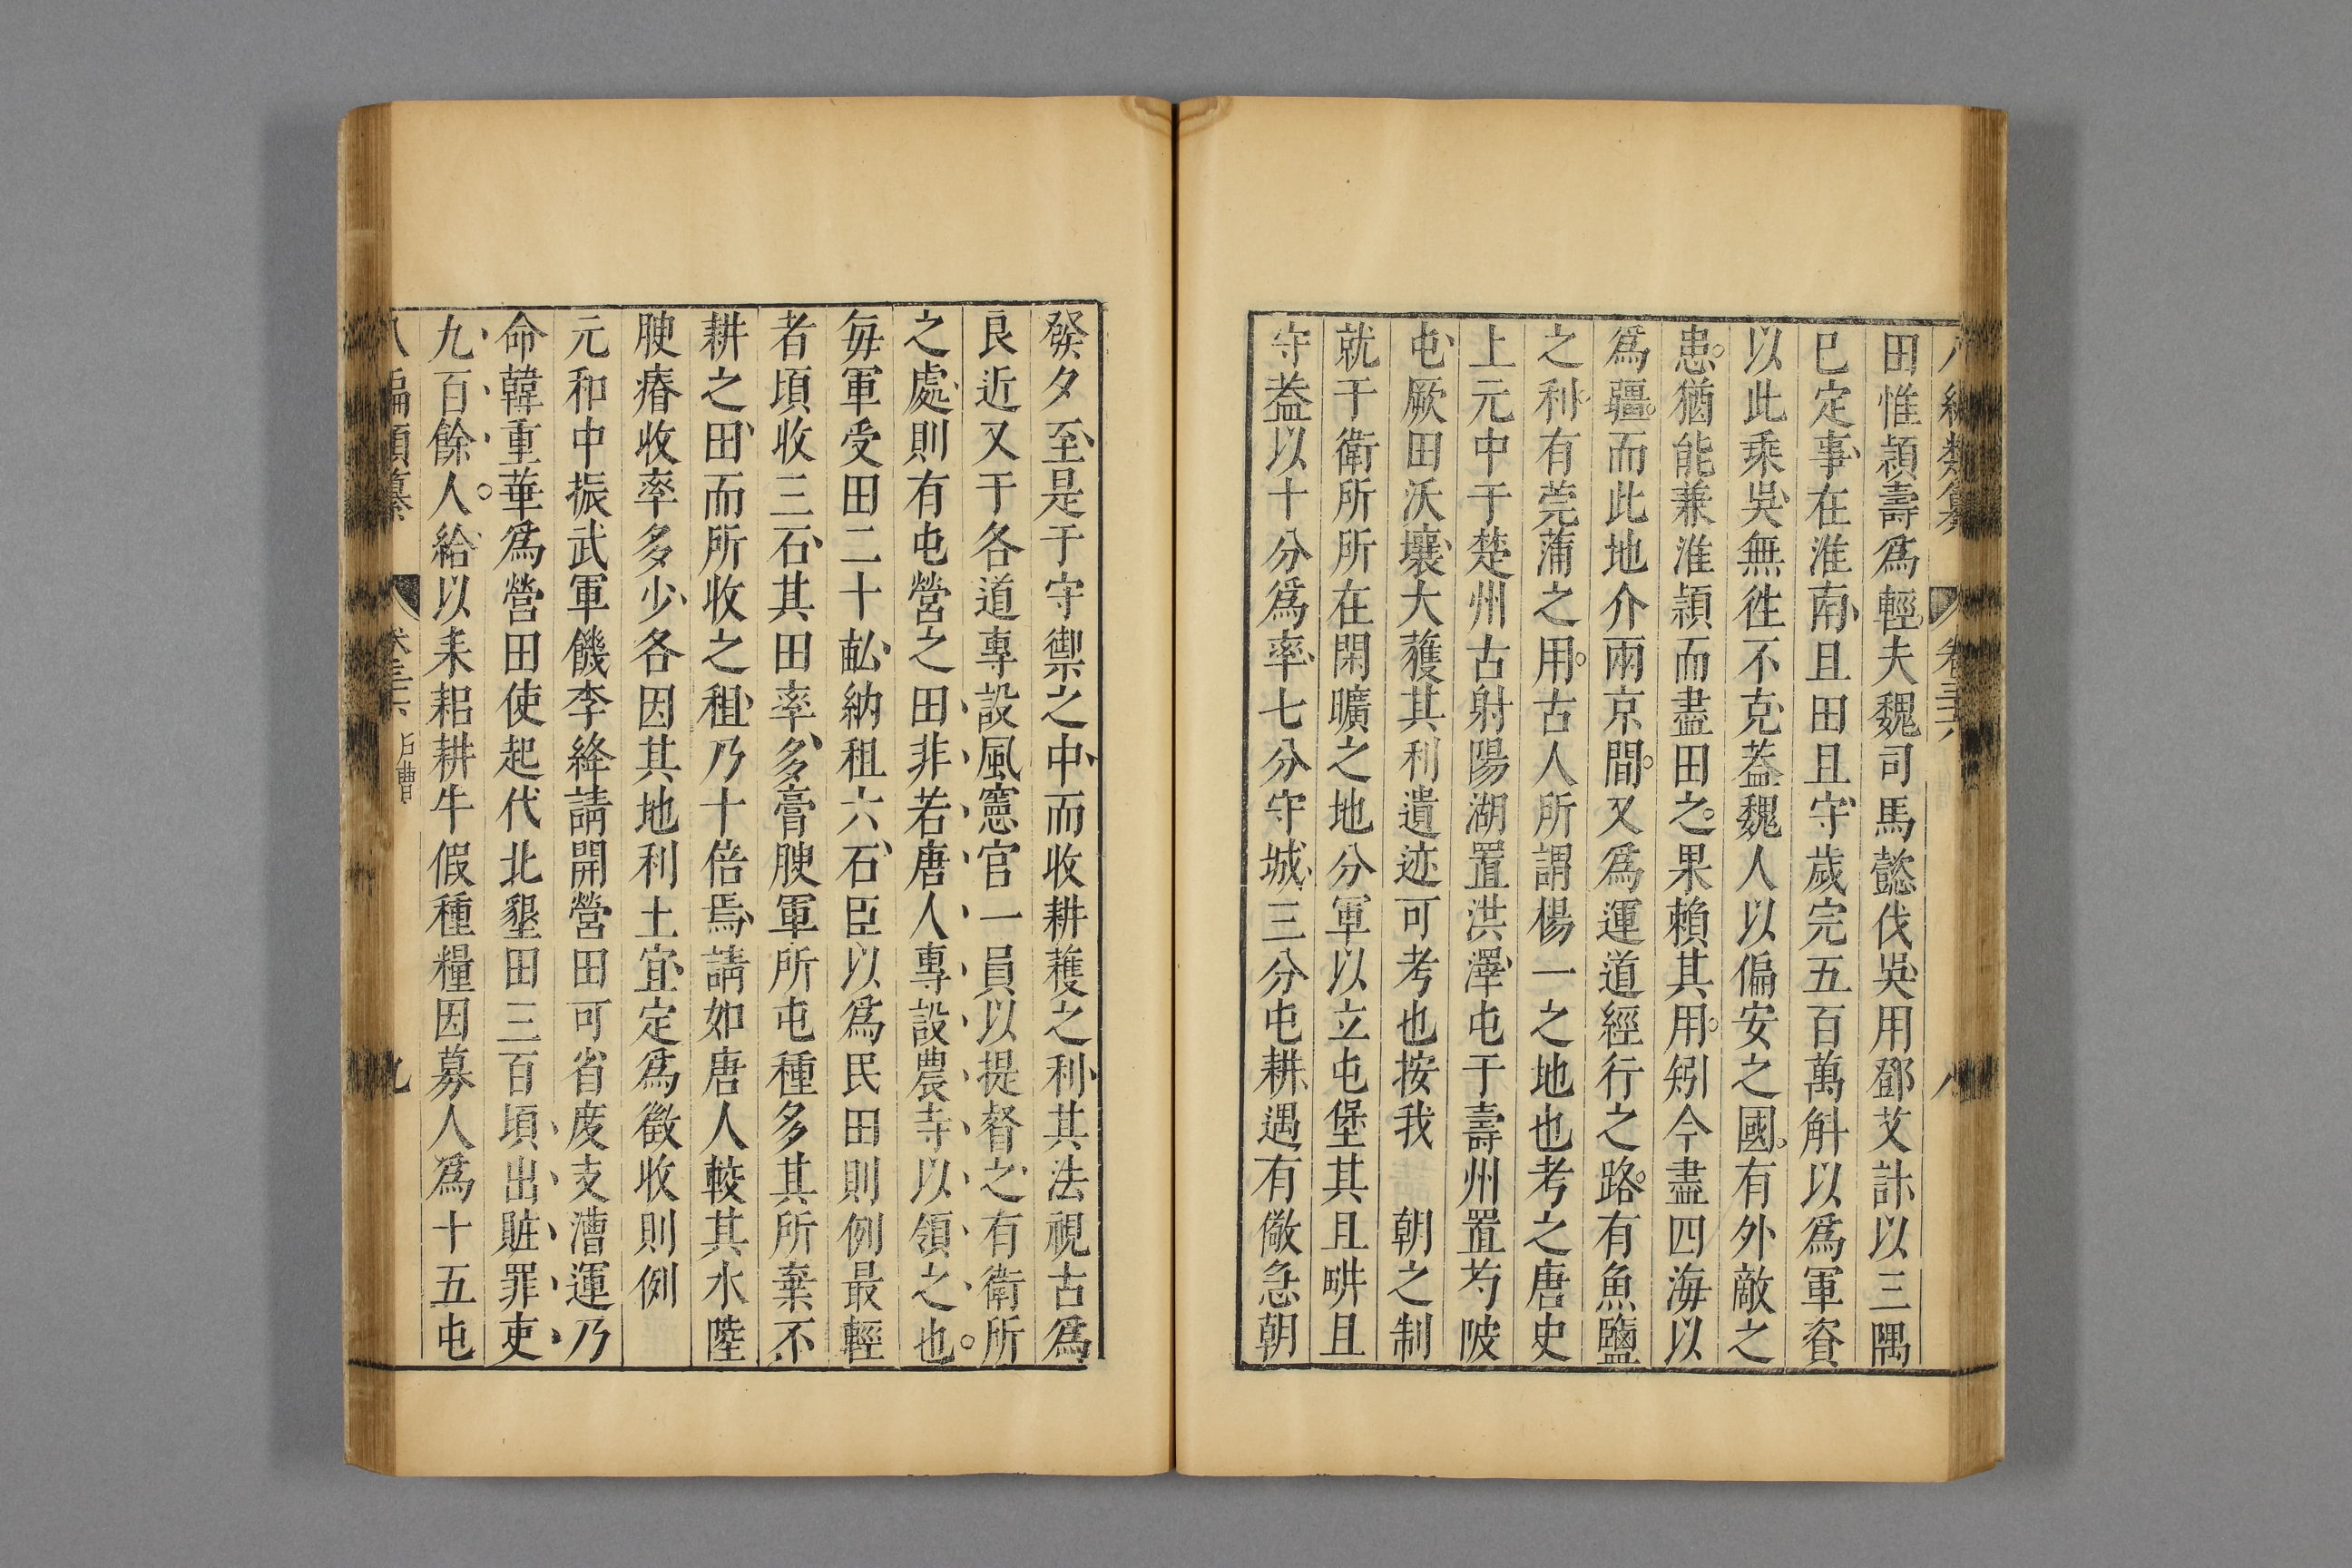 田惟潁壽爲輕夫魏司馬懿伐吳用鄧艾計以三隅
已定事在淮南且田且守歲完五百萬斛以爲軍資
以此乘吳無徃不克葢魏人以偏安之國有外敵之
患猶能兼淮潁而盡田之果賴其用矧今盡四海以
爲疆而此地介兩京間又爲運道經行之路有魚鹽
之利有莞蒲之用古人所謂楊一之地也考之唐史
上元中于楚州古射陽湖置洪澤屯于壽州置芍陂
屯厥田沃壤大獲其利遺迹可考也按我 朝之制
就于衛所所在閑曠之地分軍以立屯堡其且畊且
守葢以十分爲率七分守城三分屯耕遇有儆急朝
發夕至是于守禦之中而收耕穫之利其法視古爲
良近又于各道專設風憲官一員以提督之有衛所
之處則有屯營之田非若唐人專設農寺以領之也
每軍受田二十畝納租六石臣以爲民田則例最輕
者頃收三石其田率多膏腴軍所屯種多其所棄不
耕之田而所收之租乃十倍焉請如唐人較其水陸
腴瘠收率多少各因其地利土宜定爲徵收則例
元和中振武軍饑李絳請開營田可省度支漕運乃
命韓重華爲營田使起代北墾田三百頃出贓罪吏
九百餘人給以耒耜耕牛假種糧因募人爲十五屯